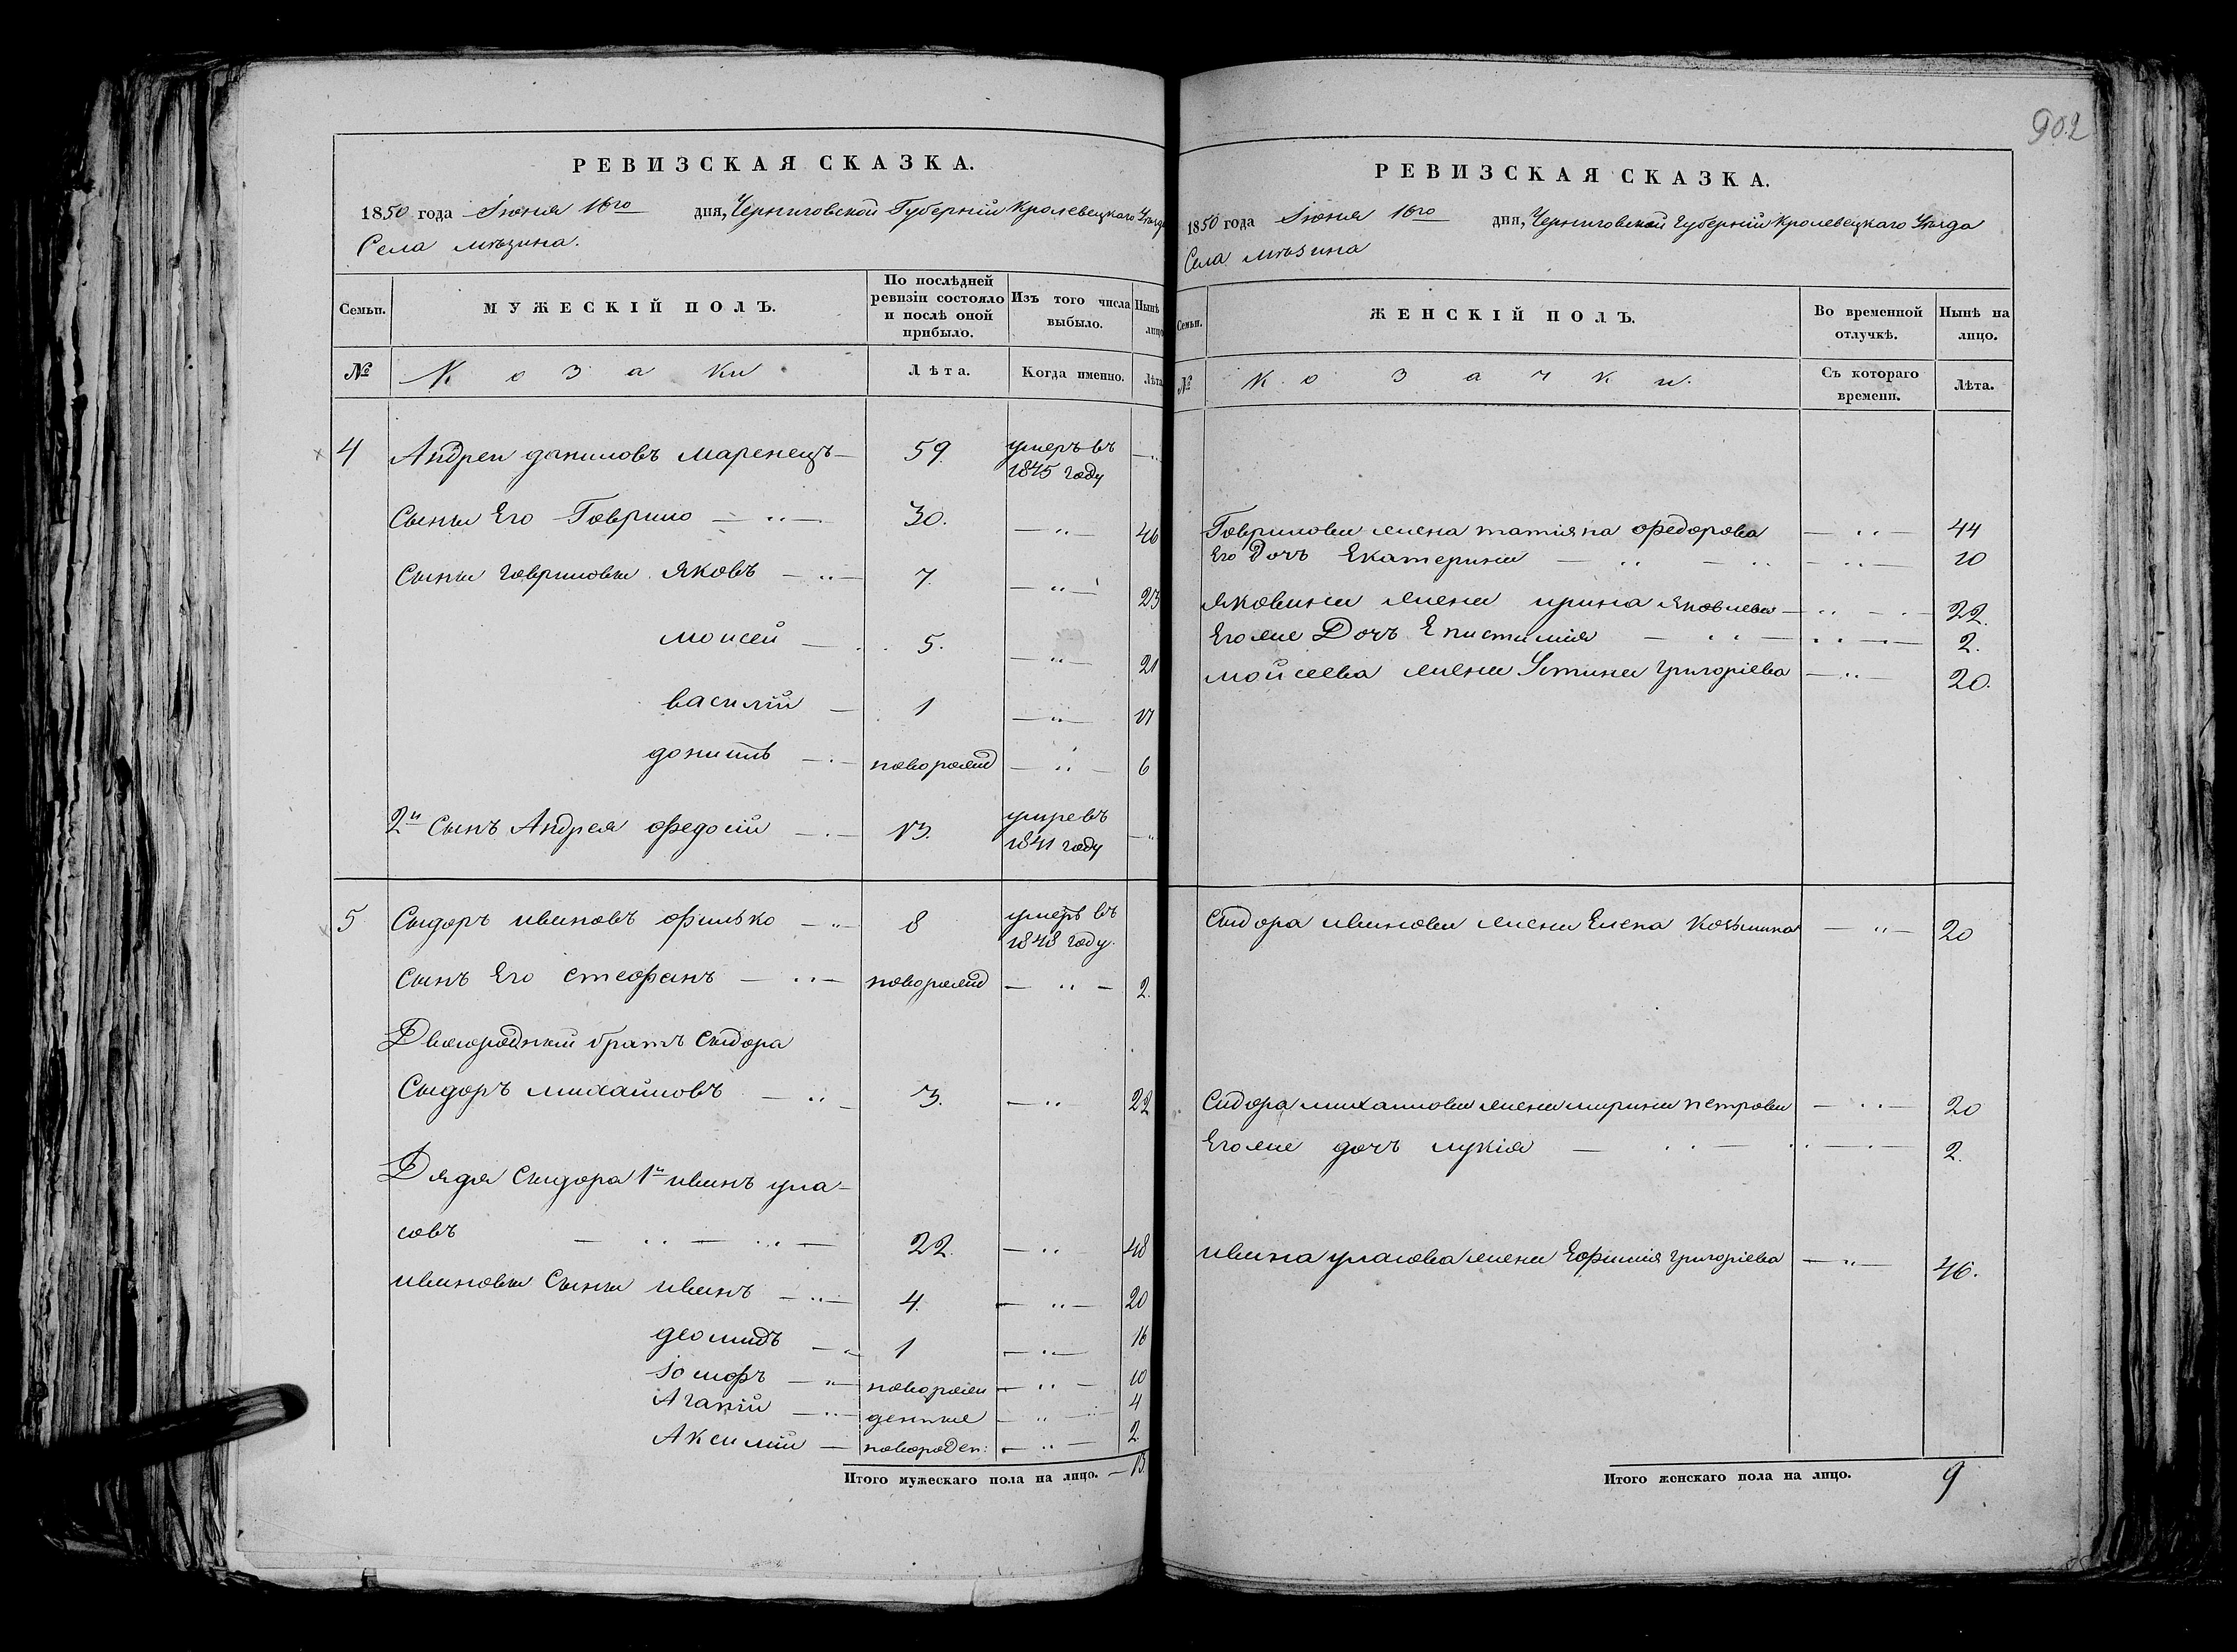 902
РЕВИЗСКАЯ СКАЗКА.
1850 года Іюня 16го дня, Черниговской Губерніи Кролевецкаго Уѣзда
Села мѣзина.
Семьи. МУЖЕСКІЙ ПОЛЪ. По послѣдней ревизіи состояло и послѣ оной прибыло. Изъ того числа выбыло. Нынѣ лицо
№ Козаки Лѣта. Когда именно. Лѣта
4 Андреи даниловъ маренецъ — 59. умеръ въ 1845 году — „
Сыны Его Гаврило — „ — 30. — „ — 46
Сыны гавриловы Яковъ — „ — 7. — „ — 23
моисей — 5. — „ — 21
василій — 1 — „ — 17
данилъ — новорожд — „ — 6
2й Сынъ Андрея федосій — 13. умре въ 1841 году — „
5 Сыдоръ ивановъ филько — „ — 8 умеръ въ 1848 году.
Сынъ Его стефанъ — „ — новорожд — „ — 2.
Двоюродный братъ Сыдора
Сыдоръ михайловъ — „ — 3. — „ 22
Дядя Сыдора 1й иванъ ула-
совъ — „ — „ — 22. — „ 48
ивановы Сыны иванъ — „ — 4. — „ — 20
деомидъ — „ 1 — „ — 16
іосифъ — „ — новорож — „ — 10
Агапій — „ — денные — „ — 4
Аксилій — новорожден: — „ — 2.
Итого мужескаго пола на лицо. — 13.
РЕВИЗСКАЯ СКАЗКА.
1850 года Іюня 16го дня, Черниговской Губерніи Кролевецкаго Уѣзда
Села мѣзина
Семьи. ЖЕНСКІЙ ПОЛЪ. Во временной отлучкѣ. Нынѣ на лицо.
№ Козачки. Съ котораго времени. Лѣта.
Гаврилова жена татіяна федорова — „ — 44
Его Дочъ Екатерина — „ — „ — „ — 10
Яковина жена ирина Яковлева — „ — 22.
Егоже Дочъ Епистимія — „ — „ — 2.
мойсеева жена Устина григоріева — „ — 20.
Сыдора иванова жена Елена козьмина — „ — 20
Сидора михаилова жена марина петрова — „ — 20
Егоже дочъ лукія — „ — „ — 2.
ивана уласова жена Ефимія григоріева — „ — 46.
Итого женскаго пола на лицо. 9